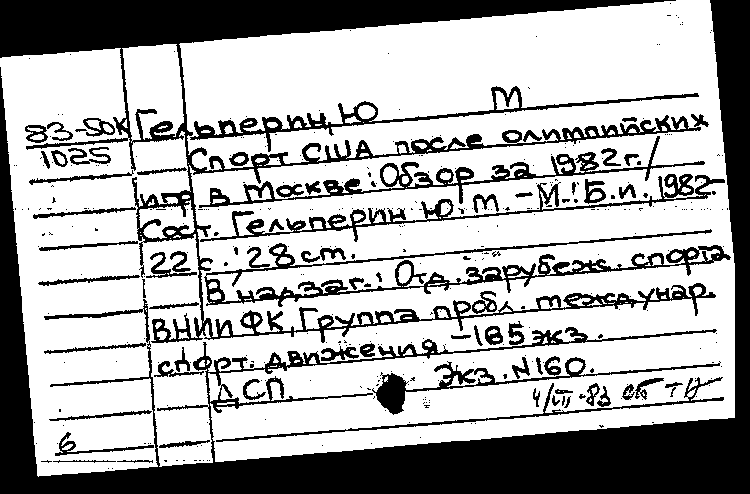 83-50К Гельперин, Ю М
1025 Спорт США после олимпийских
игр в Москве: Обзор за 1982 г. /
Сост. Гельперин Ю. М. - М.: Б.и., 1982.
22 с.; 28 см.
В надзаг.: Отд. зарубеж. спорта
ВНИИФК, Группа пробл. междунар.
спорт. движения. - 165 экз.
ДСП. Экз. N160.
4/VII-83
6